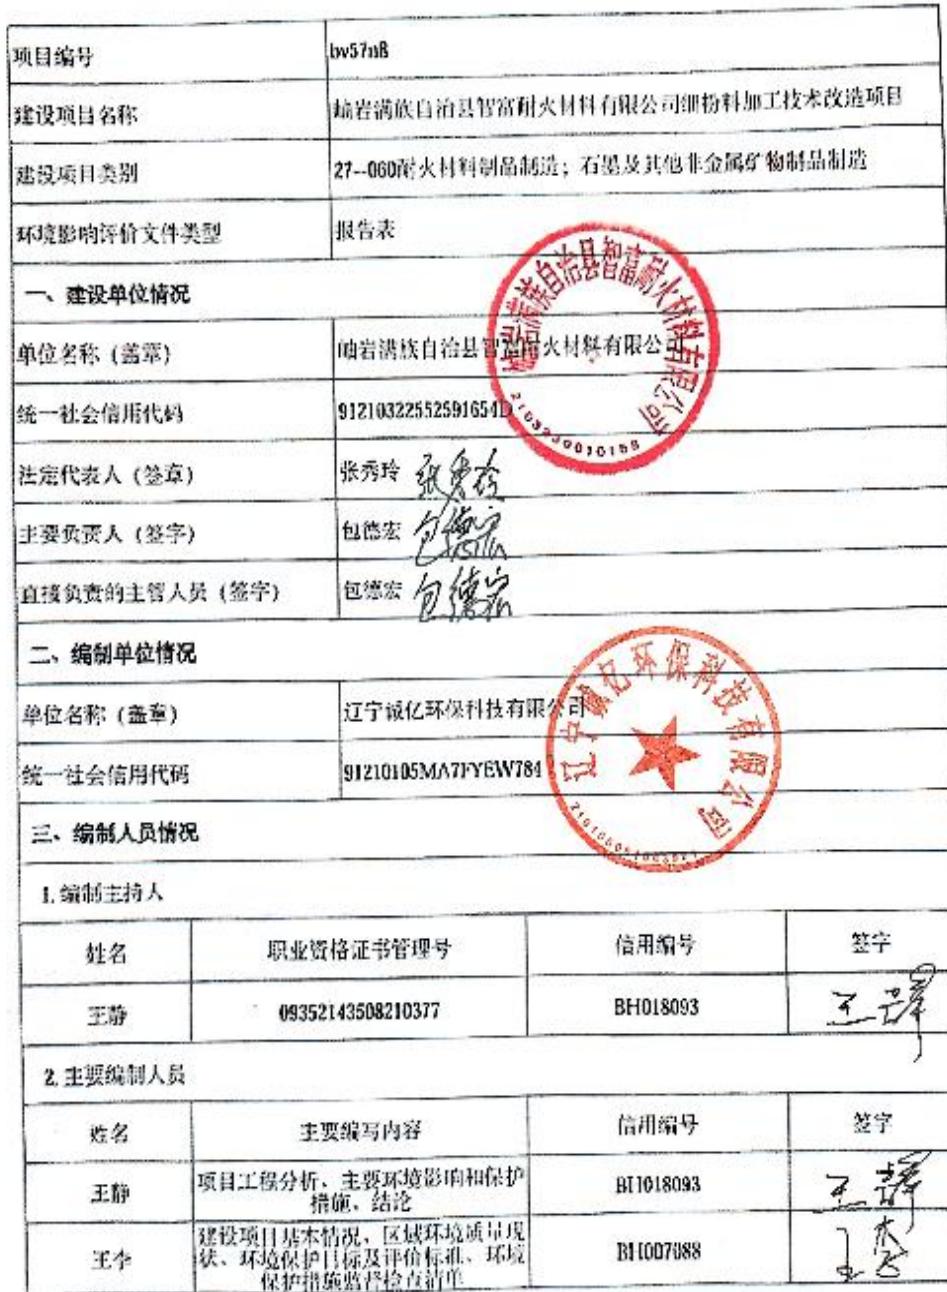 项目编号 bv57n8
建设项目名称 岫岩满族自治县智富耐火材料有限公司细粉料加工技术改造项目
建设项目类别 27--060耐火材料制品制造；石墨及其他非金属矿物制品制造
环境影响评价文件类型 报告表
一、建设单位情况
单位名称（盖章） 岫岩满族自治县智富耐火材料有限公司
岫岩满族自治县智富耐火材料有限公司
统一社会信用代码 91210322552591654D
法定代表人（签章） 张秀玲 张秀玲
主要负责人（签字） 包德宏 包德宏
直接负责的主管人员（签字） 包德宏 包德宏
二、编制单位情况
单位名称（盖章） 辽宁诚亿环保科技有限公司
辽宁诚亿环保科技有限公司
统一社会信用代码 91210105MA7FYEW784
三、编制人员情况
1.编制主持人
姓名 职业资格证书管理号 信用编号 签字
王静 09352143508210377 BH018093 王静
2.主要编制人员
姓名 主要编写内容 信用编号 签字
王静 项目工程分析、主要环境影响和保护
措施、结论 BH018093 王静
王李 建设项目基本情况、区域环境质量现
状、环境保护目标及评价标准、环境
保护措施监督检查清单 BH007088